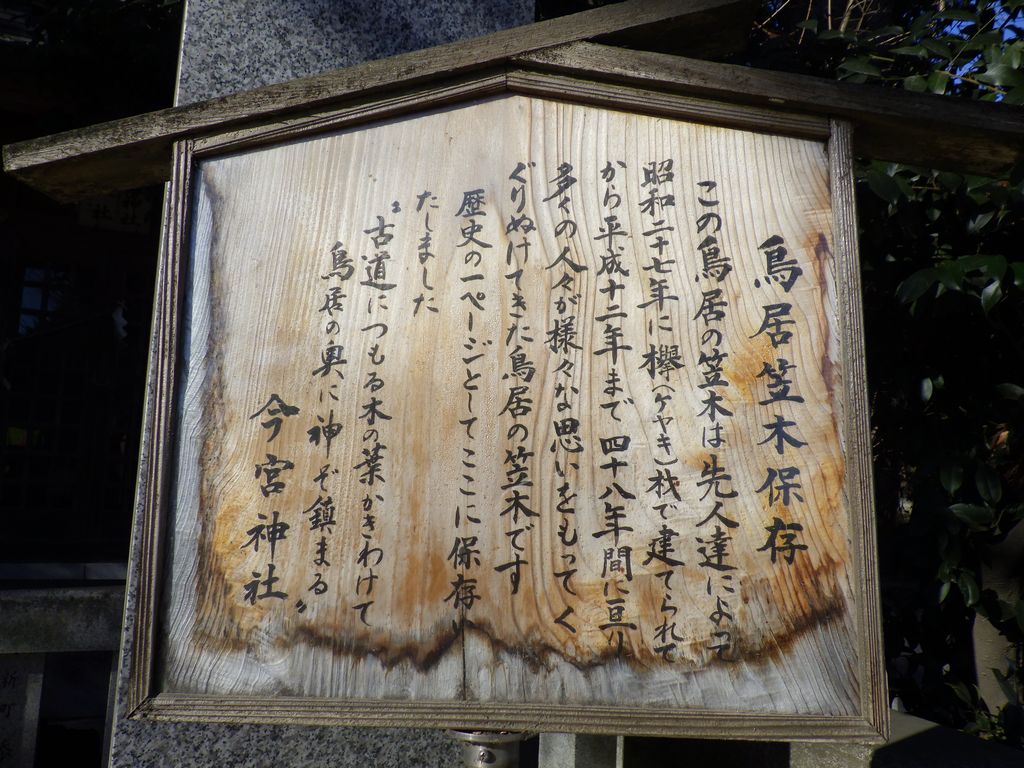 鳥居笠木保存
この鳥居の笠木は先人達によって
昭和二十七年に欅(ケヤキ)材で建てられて
から平成十二年まで四十八年間に亘り
多くの人々が様々な思いをもってく
ぐりぬけてきた鳥居の笠木です
歴史の一ページとしてここに保存い
たしました
〝古道につもる木の葉かきわけて
鳥居の奥に神ぞ鎮まる〟
今宮神社